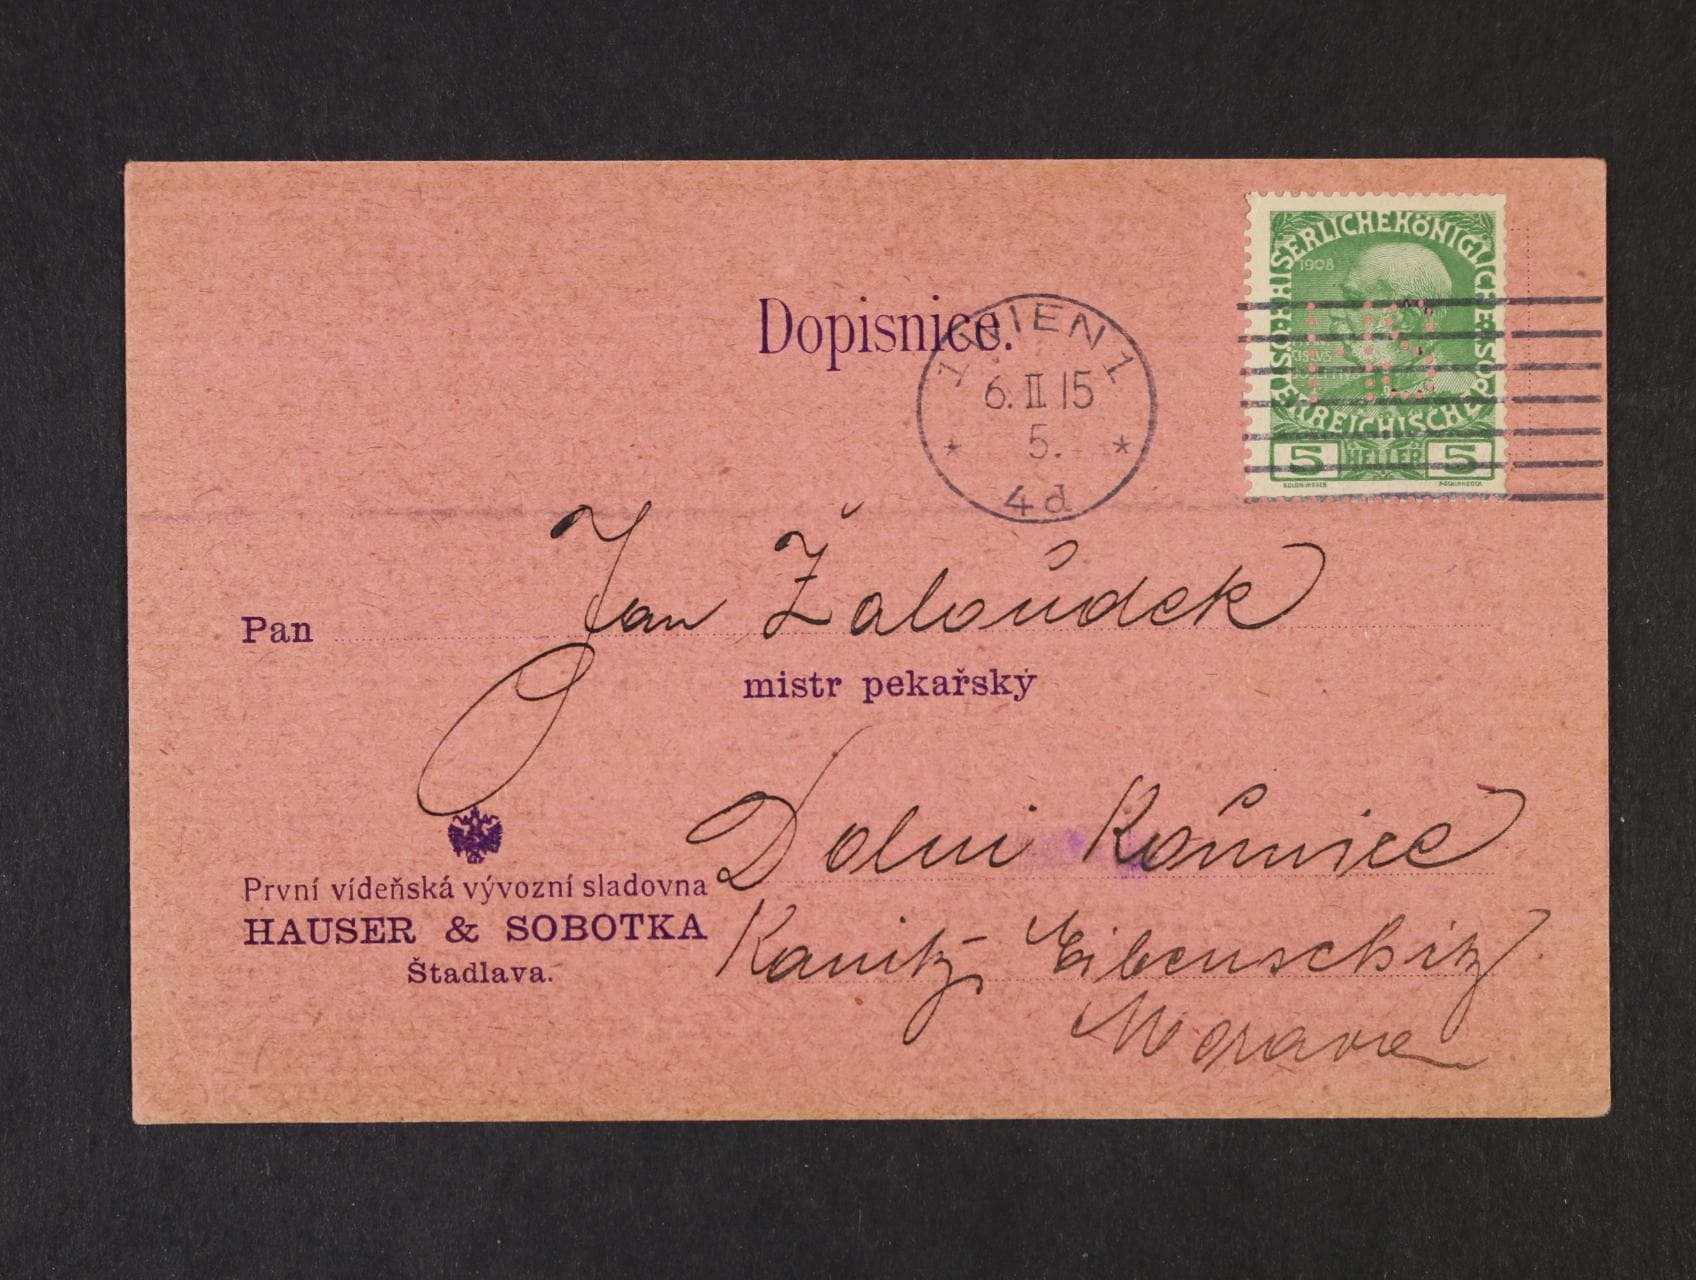 Dopisnice.
1 WIEN 1
6. II 15
5.
* *
4d
KAISERLICHEKÖNIGLICHE ÖSTERREICHISCHE POST
1908
5 HELLER 5
Pan Jan Žaloůdek
mistr pekařský
Dolni
První vídeňská vývozní sladovna
HAUSER & SOBOTKA
Štadlava.
Kanitz, Eibenschitz.
Morava